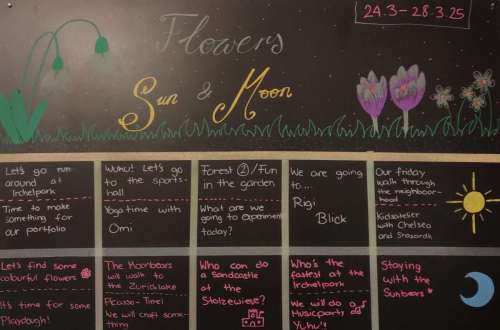 24.3-28.3.25
Flowers
Sun & Moon
Let's go run
around at
Irchelpark
Time to make
something for
our portfolio
Wuhu! Let's go
to the sports-
hall
Yoga time with
Omi
Forest ② / Fun
in the garden
What are we
going to experiment
today?
We are going
to....
Rigi
Blick
Our friday
walk through
the neighbour-
hood
Kidsatelier
with Chelsea
and
Let's find some
colourful flowers
It's time for some
Playdough!
The Koorbears
will walk to
the Zürichlake
Picasso-Time!
We will craft some-
thing
Who can do
a Sandcastle
at the
Stolzewiese?
Who's the
fastest at the
Irchelpark
We will do a
Musicparty at
Yuhu's
Staying
with the
Sunbears